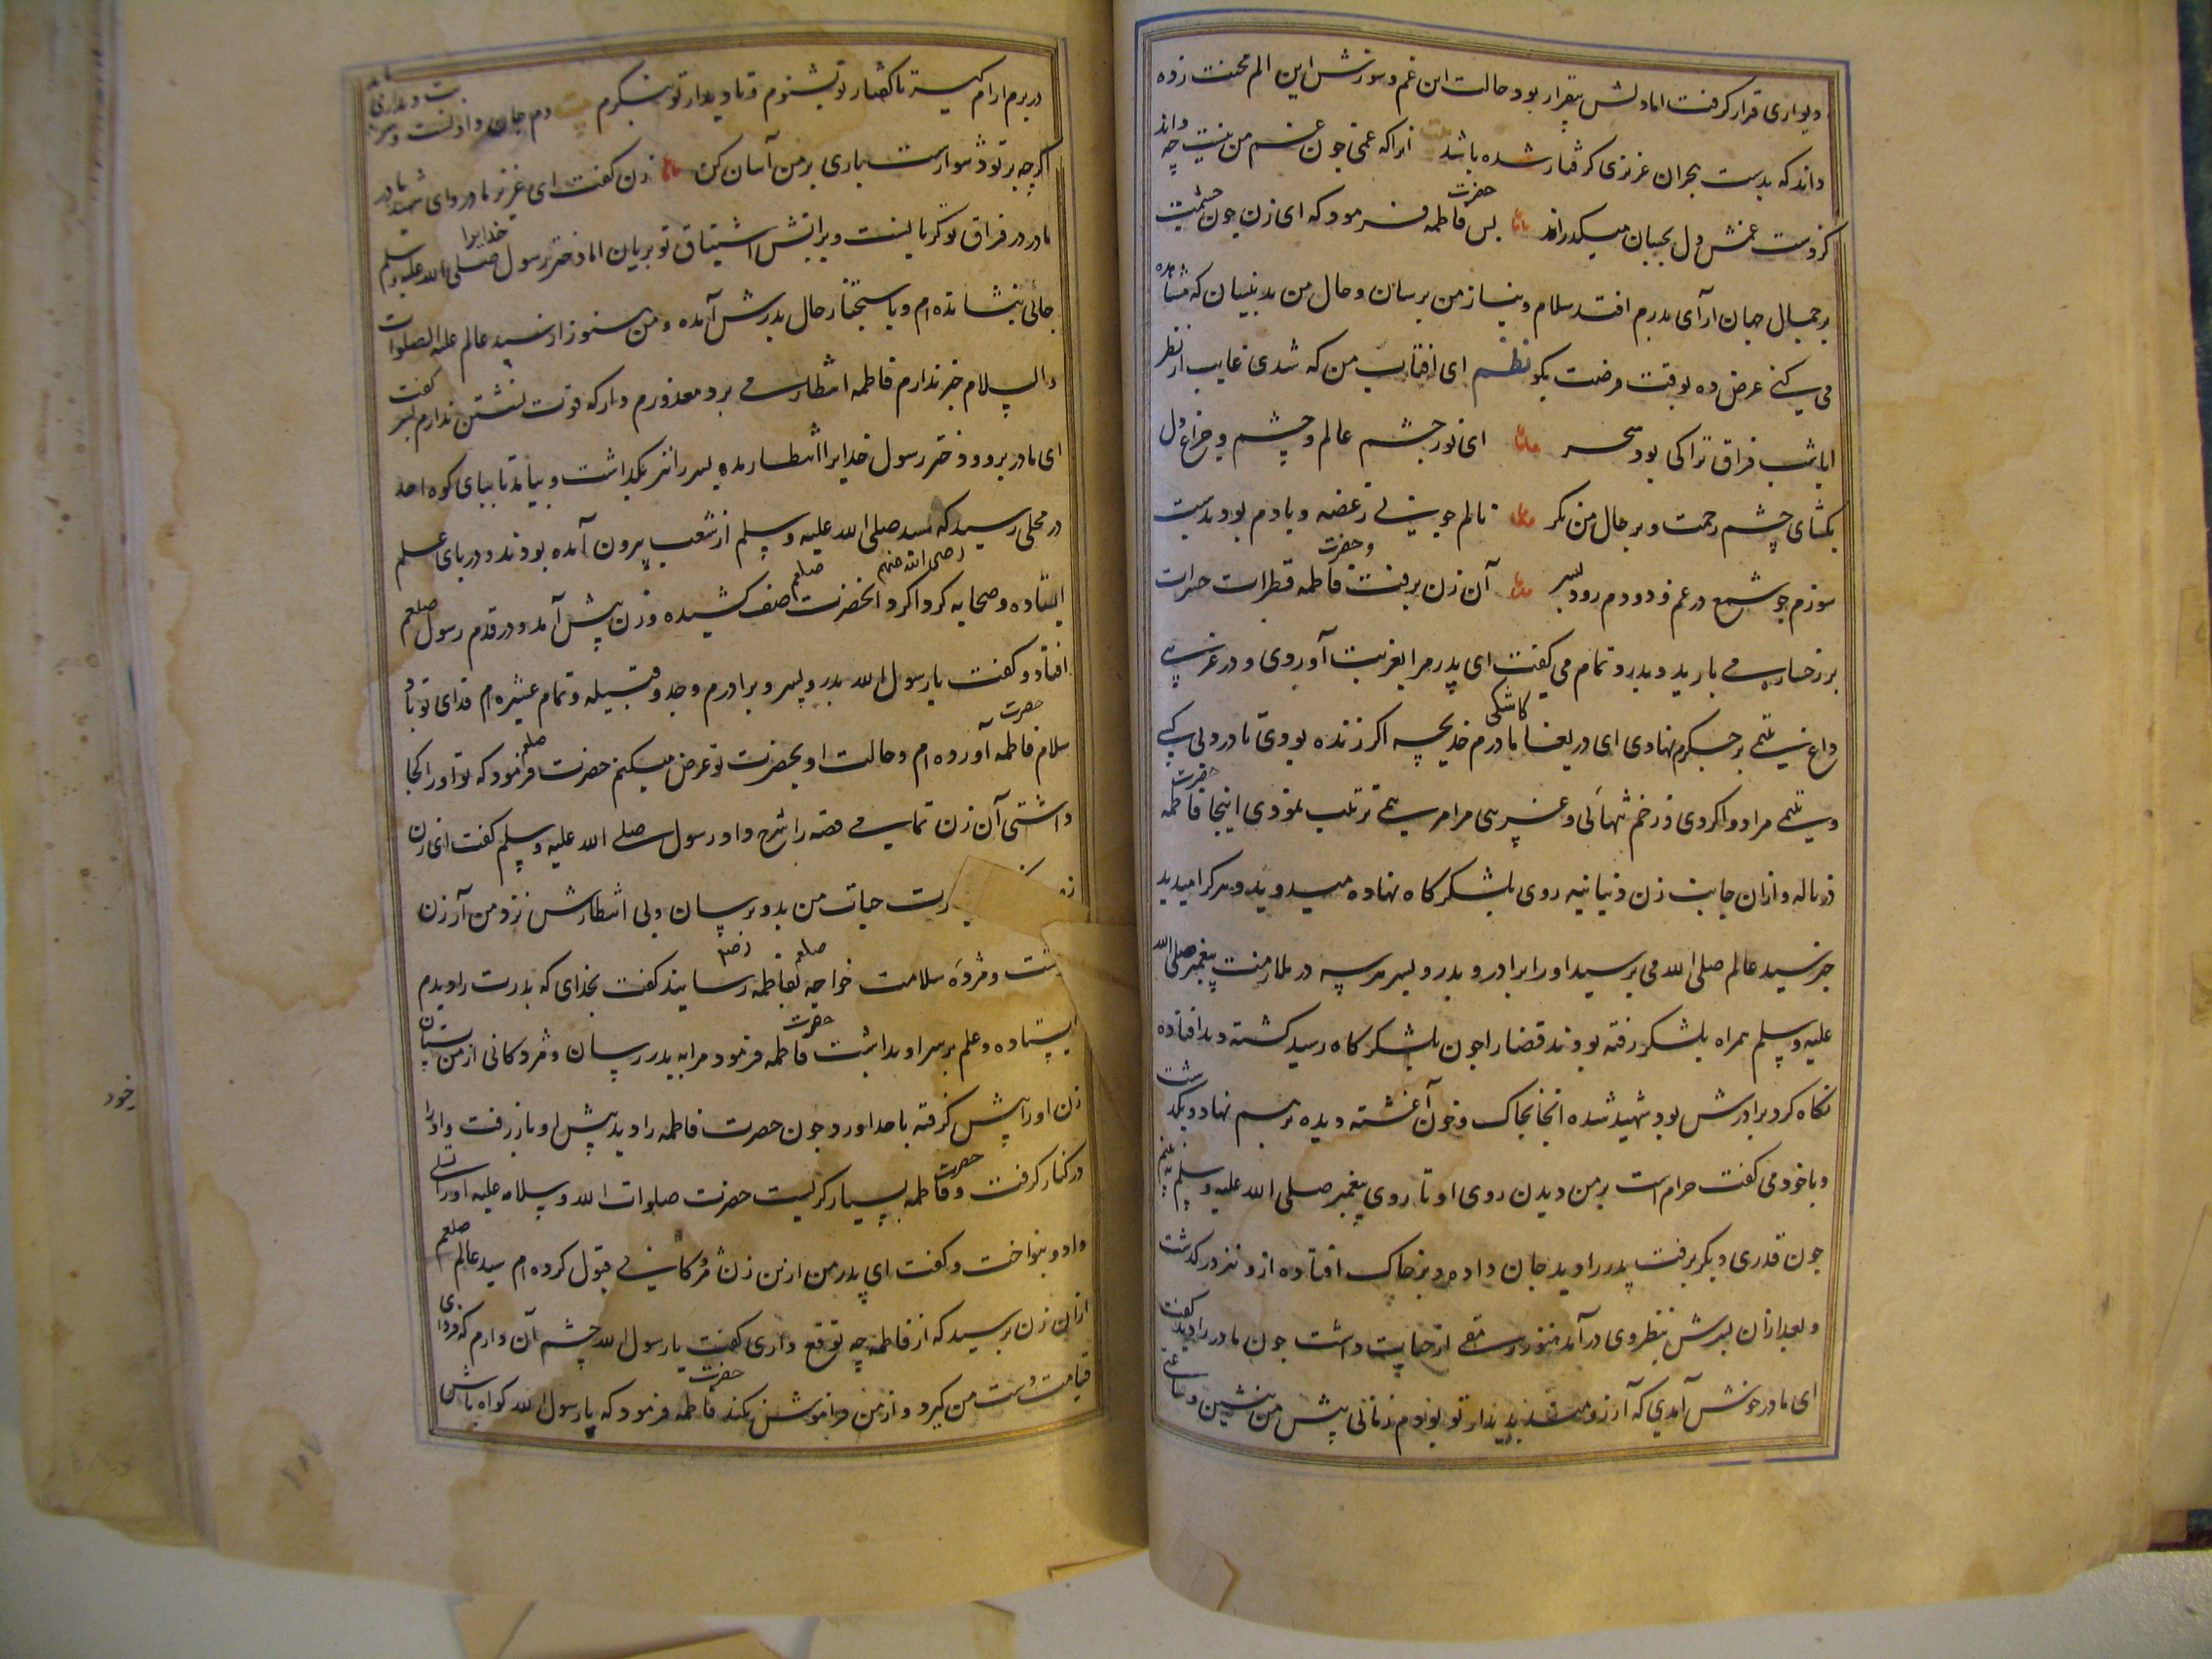 دیواری قرار گرفت اما دلش بیقرار بود حالت این غم و سوزش این الم محنت زده
داند که بدست هجران عزیزی گرفتار شده باشد بیت انرا که غمی چون غم من نیست چه داند
کز دست غمش دل بچسان میگذراند پس حضرت فاطمه فرمود که ای زن چون چشمت
بر جمال جهان آرای پدرم افتد سلام و نیاز من برسان و حال من بدینسان که مشاهده
می کنی عرض ده بوقت فرصت بگو نظم ای افتاب من که شدی غایب از نظر
ایا شب فراق ترا کی بود سحر ای نور چشم عالم و چشم و چراغ دل
بگشای چشم رحمت و بر حال من نگر نالم چو نی ز غصه و یادم بود بدست
سوزم چو شمع در غم و دودم رود بسر آن زن برفت و حضرت فاطمه قطرات حسرات
بر رخساره می بارید و بدرد تمام می گفت ای پدر مرا بغربت آوردی و در غریبی
داغ یتیمی بر جگرم نهادی ای دریغا کاشکی مادرم خدیجه اگر زنده بودی تا درد بی کسی
و یتیمی مرا دوا کردی و زخم تنهائی و غریبی مرا مرهمی ترتیب نمودی اینجا حضرت فاطمه
در ناله و ازان جانب زن دنیانیه روی بلشکرگاه نهاده میدوید و هر کرا میدید
خبر سید عالم صلی الله می پرسید او را برادر و پدر و پسر هر سه در ملازمت پیغمبر صلی الله
علیه وسلم همراه بلشکر رفته بودند قضا را چون بلشکرگاه رسید کشته دید افتاده
نگاه کرد برادرش بود شهید شده انجا بخاک و خون آغشته دیده بر هم نهاد و بگذشت
و با خود می گفت حرام است بر من دیدن روی او تا روی پیغمبر صلی الله علیه وسلم نه بینم
چون قدری دیگر برفت پدر را دید جان داده و بر خاک افتاده از و نیز درگذشت
و بعد ازان پسرش بنظر وی درآمد هنوز رمقی از حیات داشت چون مادر را دید گفت
ای مادر خوش آمدی که آرزومند بدیدار تو بودم زمانی پیش من بنشین و ساعتی
در برم آرام گیر تا گفتار تو بشنوم و تا دیدار تو بنگرم بیت
اگرچه بر تو دشوارست باری بر من آسان کن زن گفت ای عزیز مادر و ای شهید مادر
مادر در فراق تو گریانست و بر آتش اشتیاق تو بریان اما دختر رسول خدایرا صلی الله علیه وسلم
جائی بنشانده ام و باستخبار حال پدرش آمده و من هنوز از سید عالم علیه الصلوات
والسلام خبر ندارم فاطمه انتظار می برد معذورم دار که قوت نشستن ندارم پسر گفت
ای مادر برو و دختر رسول خدایرا انتظار مده پسر را نیز بگذاشت و بیامد تا بپای کوه احد
در محلی رسید که سید صلی الله علیه وسلم از شعب بیرون آمده بودند و در پای علم
ایستاده و صحابه رضی الله عنهم گرداگرد انحضرت صلعم صف کشیده و زن پیش آمد و در قدم رسول صلعم
افتاد و گفت یا رسول الله پدر و پسر و برادرم و جد و قبیله و تمام عشیره ام فدای تو باد
سلام حضرت فاطمه آورده ام و حالت او بحضرت تو عرض میکنم حضرت صلعم فرمود که تو او را کجا
داشتی آن زن تمامی قصه را شرح داد رسول صلی الله علیه وسلم گفت ای زن
حیات من بدو برسان ولی انتظارش نزد من آر زن
و مژده سلامت خواجه صلعم بفاطمه رضه رسانید گفت بخدای که پدرت را دیدم
ایستاده و علم بر سر او بداشت حضرت فاطمه فرمود مرا به پدر رسان و مژدگانی از من بستان
زن او را پیش گرفته باحد اورد و چون حضرت فاطمه را دید پیش او باز رفت و او را
در کنار گرفت و حضرت فاطمه بسیار گریست حضرت صلوات الله وسلامه علیه او را تسلی
داد و بنواخت و گفت ای پدر من ازین زن مژدگانی قبول کرده ام سید عالم صلعم
ازان زن پرسید که از فاطمه چه توقع داری گفت یا رسول الله چشم آن دارم که فردای
قیامت دست من گیرد و از من فراموش نکند حضرت فاطمه فرمود که یا رسول الله گواه باش
خود